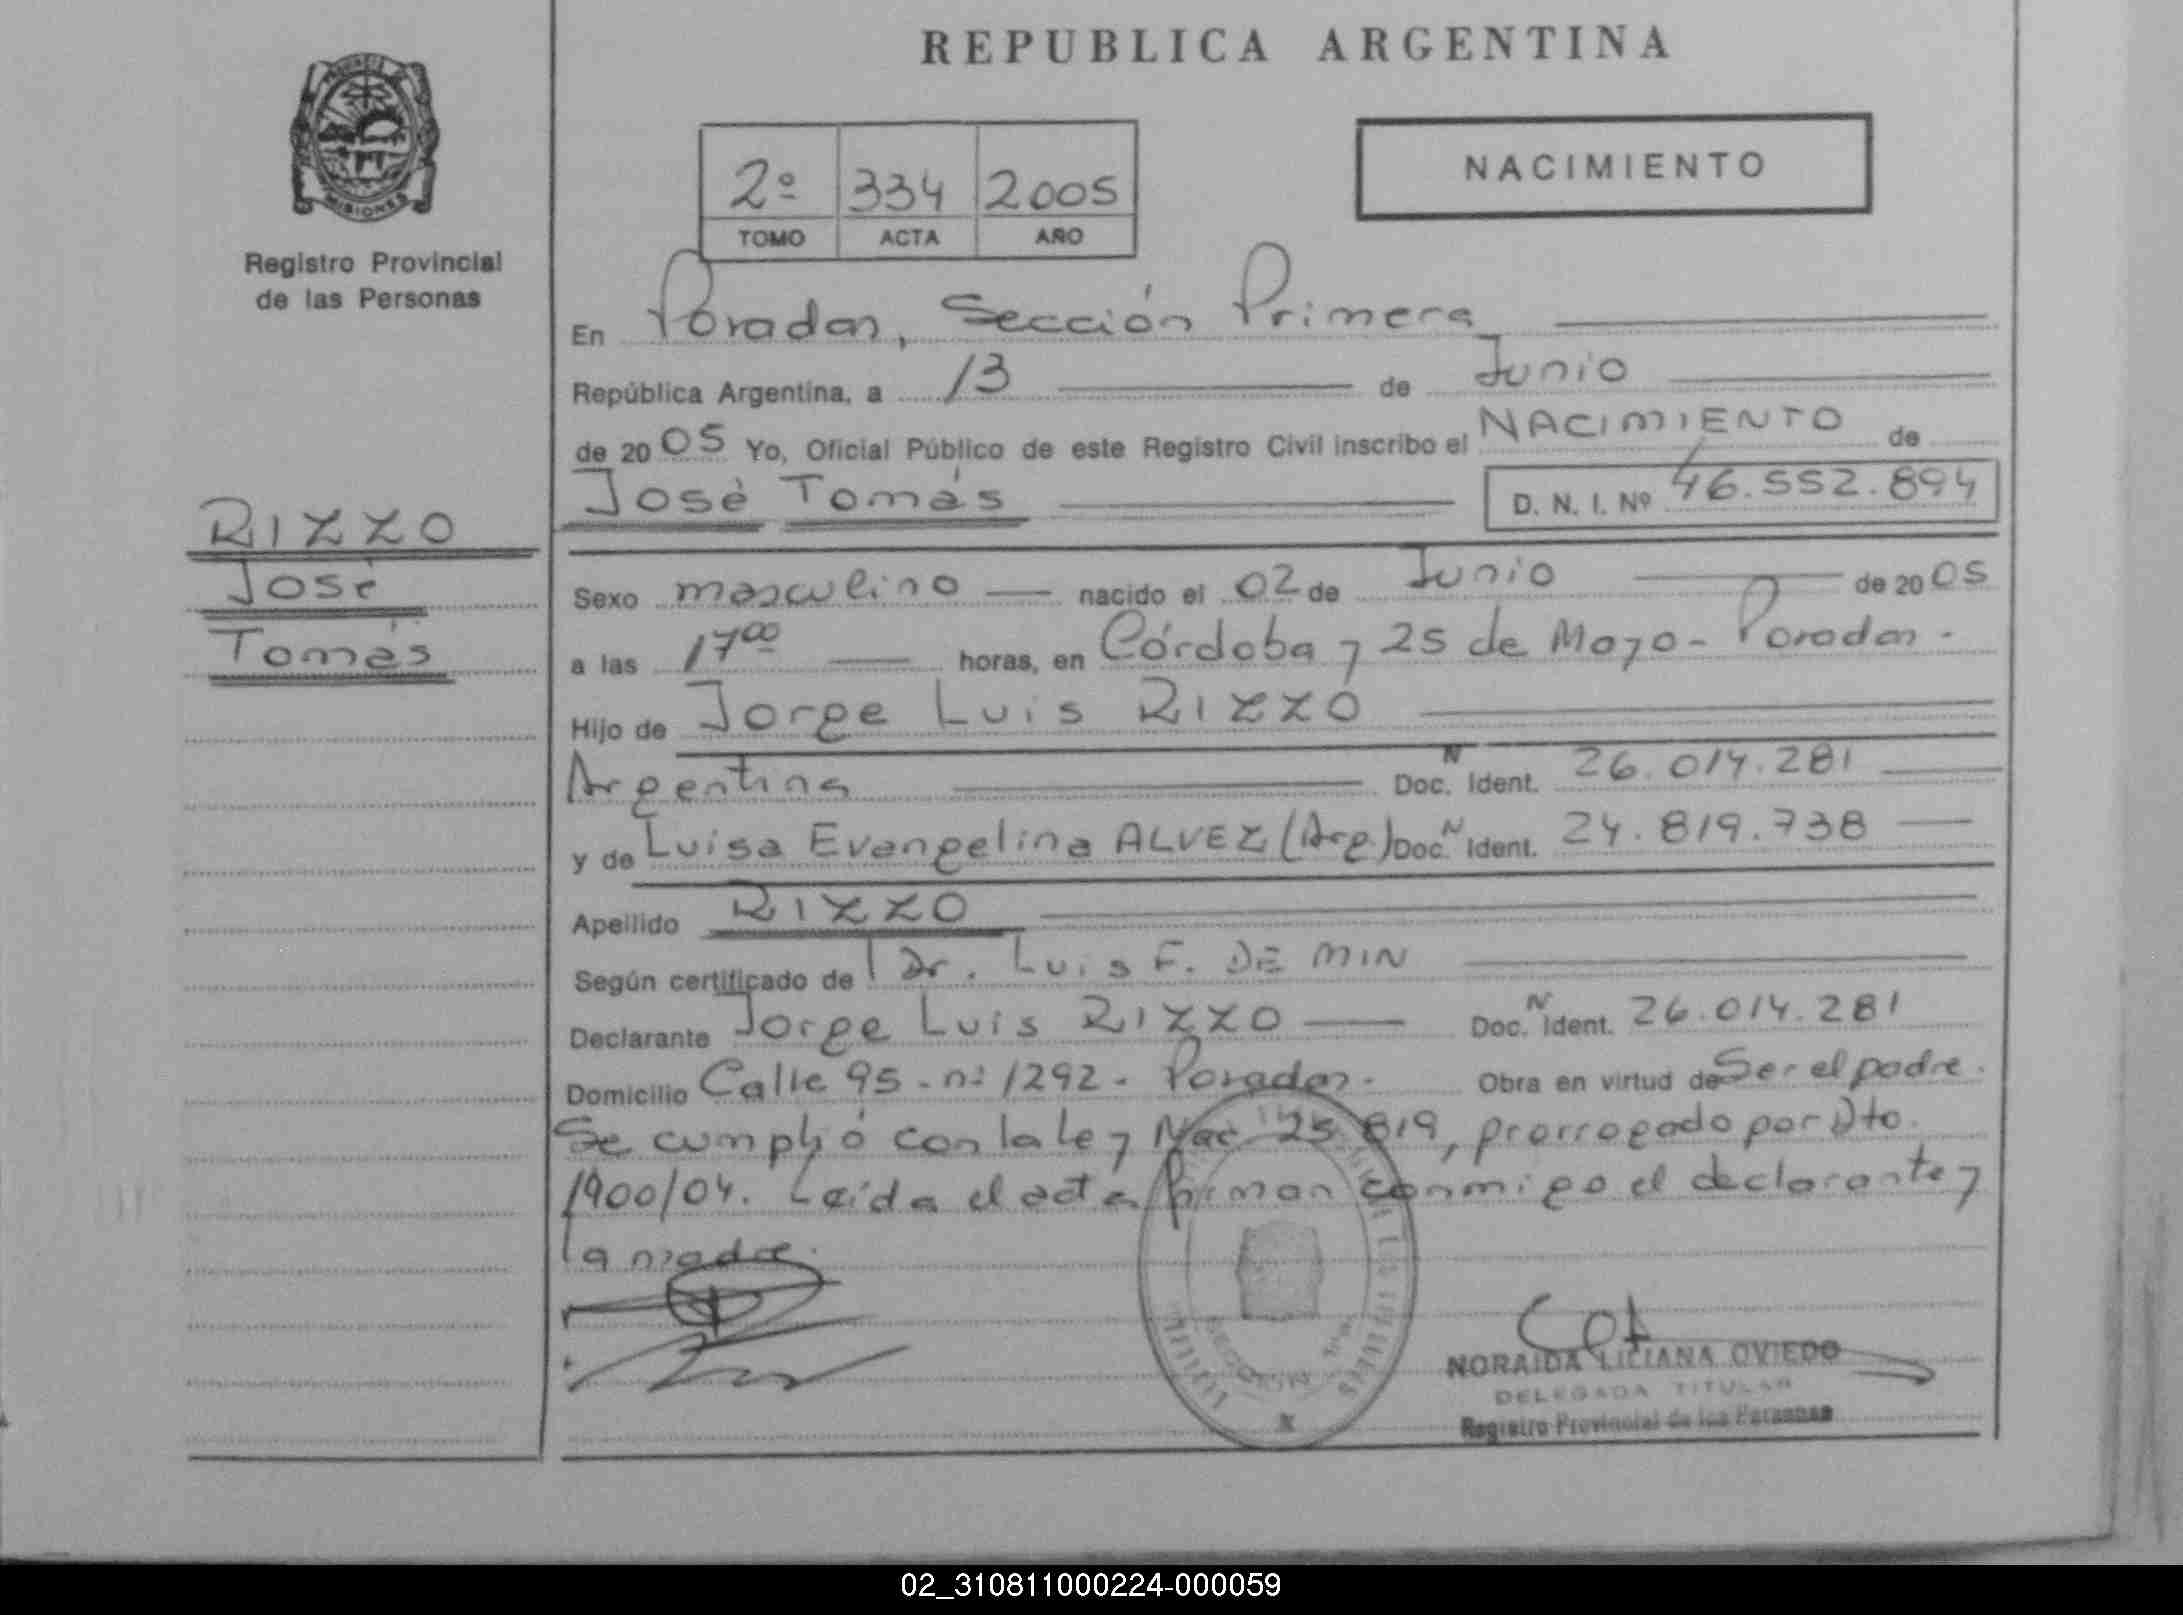 REPUBLICA ARGENTINA
PROVINCIA DE
MISIONES
Registro Provincial
de las Personas
NACIMIENTO
2º 334 2005
TOMO ACTA AÑO
En Posadas, Sección Primera
República Argentina, a 13 de Junio
de 2005 Yo, Oficial Público de este Registro Civil inscribo el NACIMIENTO de
José Tomás D. N. I. Nº 46.552.894
RIZZO
José
Tomás
Sexo masculino nacido el 02 de Junio de 2005
a las 17⁰⁰ horas, en Córdoba y 25 de Mayo - Posadas.
Hijo de Jorge Luis RIZZO
Argentina Doc. N Ident. 26.014.281
y de Luisa Evangelina ALVEZ (Arg.) Doc. N Ident. 24.819.738
Apellido RIZZO
Según certificado de Dr. Luis F. DE MIN
Declarante Jorge Luis RIZZO Doc. N Ident. 26.014.281
Domicilio Calle 95 - nº 1292 - Posadas. Obra en virtud de Ser el padre.
Se cumplió con la ley Nac. 25 819, prorrogado por Dto.
1900/04. Leída el acta firman conmigo el declarante y
la madre.
NORAIDA LILIANA OVIEDO
DELEGADA TITULAR
Registro Provincial de las Personas
02_310811000224-000059